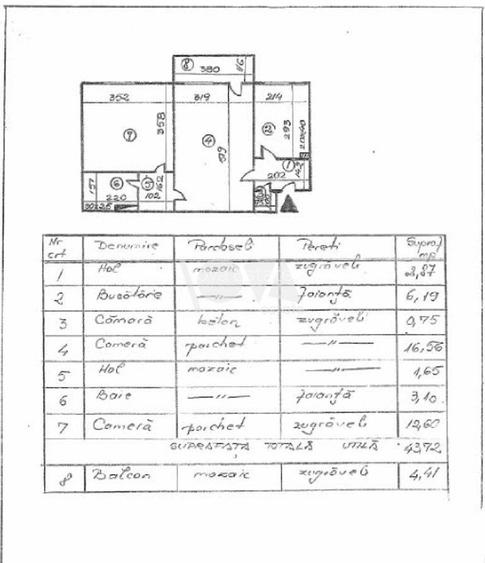 8 380 116
352 319 214
358 293 200x40
7 4 2
519
1
157 6 5 162 202 143
220 102
Nr crt Denumire Pardoseli Pereti Supraf mp
1 Hol mozaic zugrăveli 2,87
2 Bucătărie —"— faianță 6,19
3 Cămară beton zugrăveli 0,75
4 Cameră parchet —"— 16,56
5 Hol mozaic —"— 1,65
6 Baie —"— faianță 3,10
7 Cameră parchet zugrăveli 12,60
SUPRAFAȚA TOTALĂ UTILĂ 43,72
8 Balcon mozaic zugrăveli 4,41